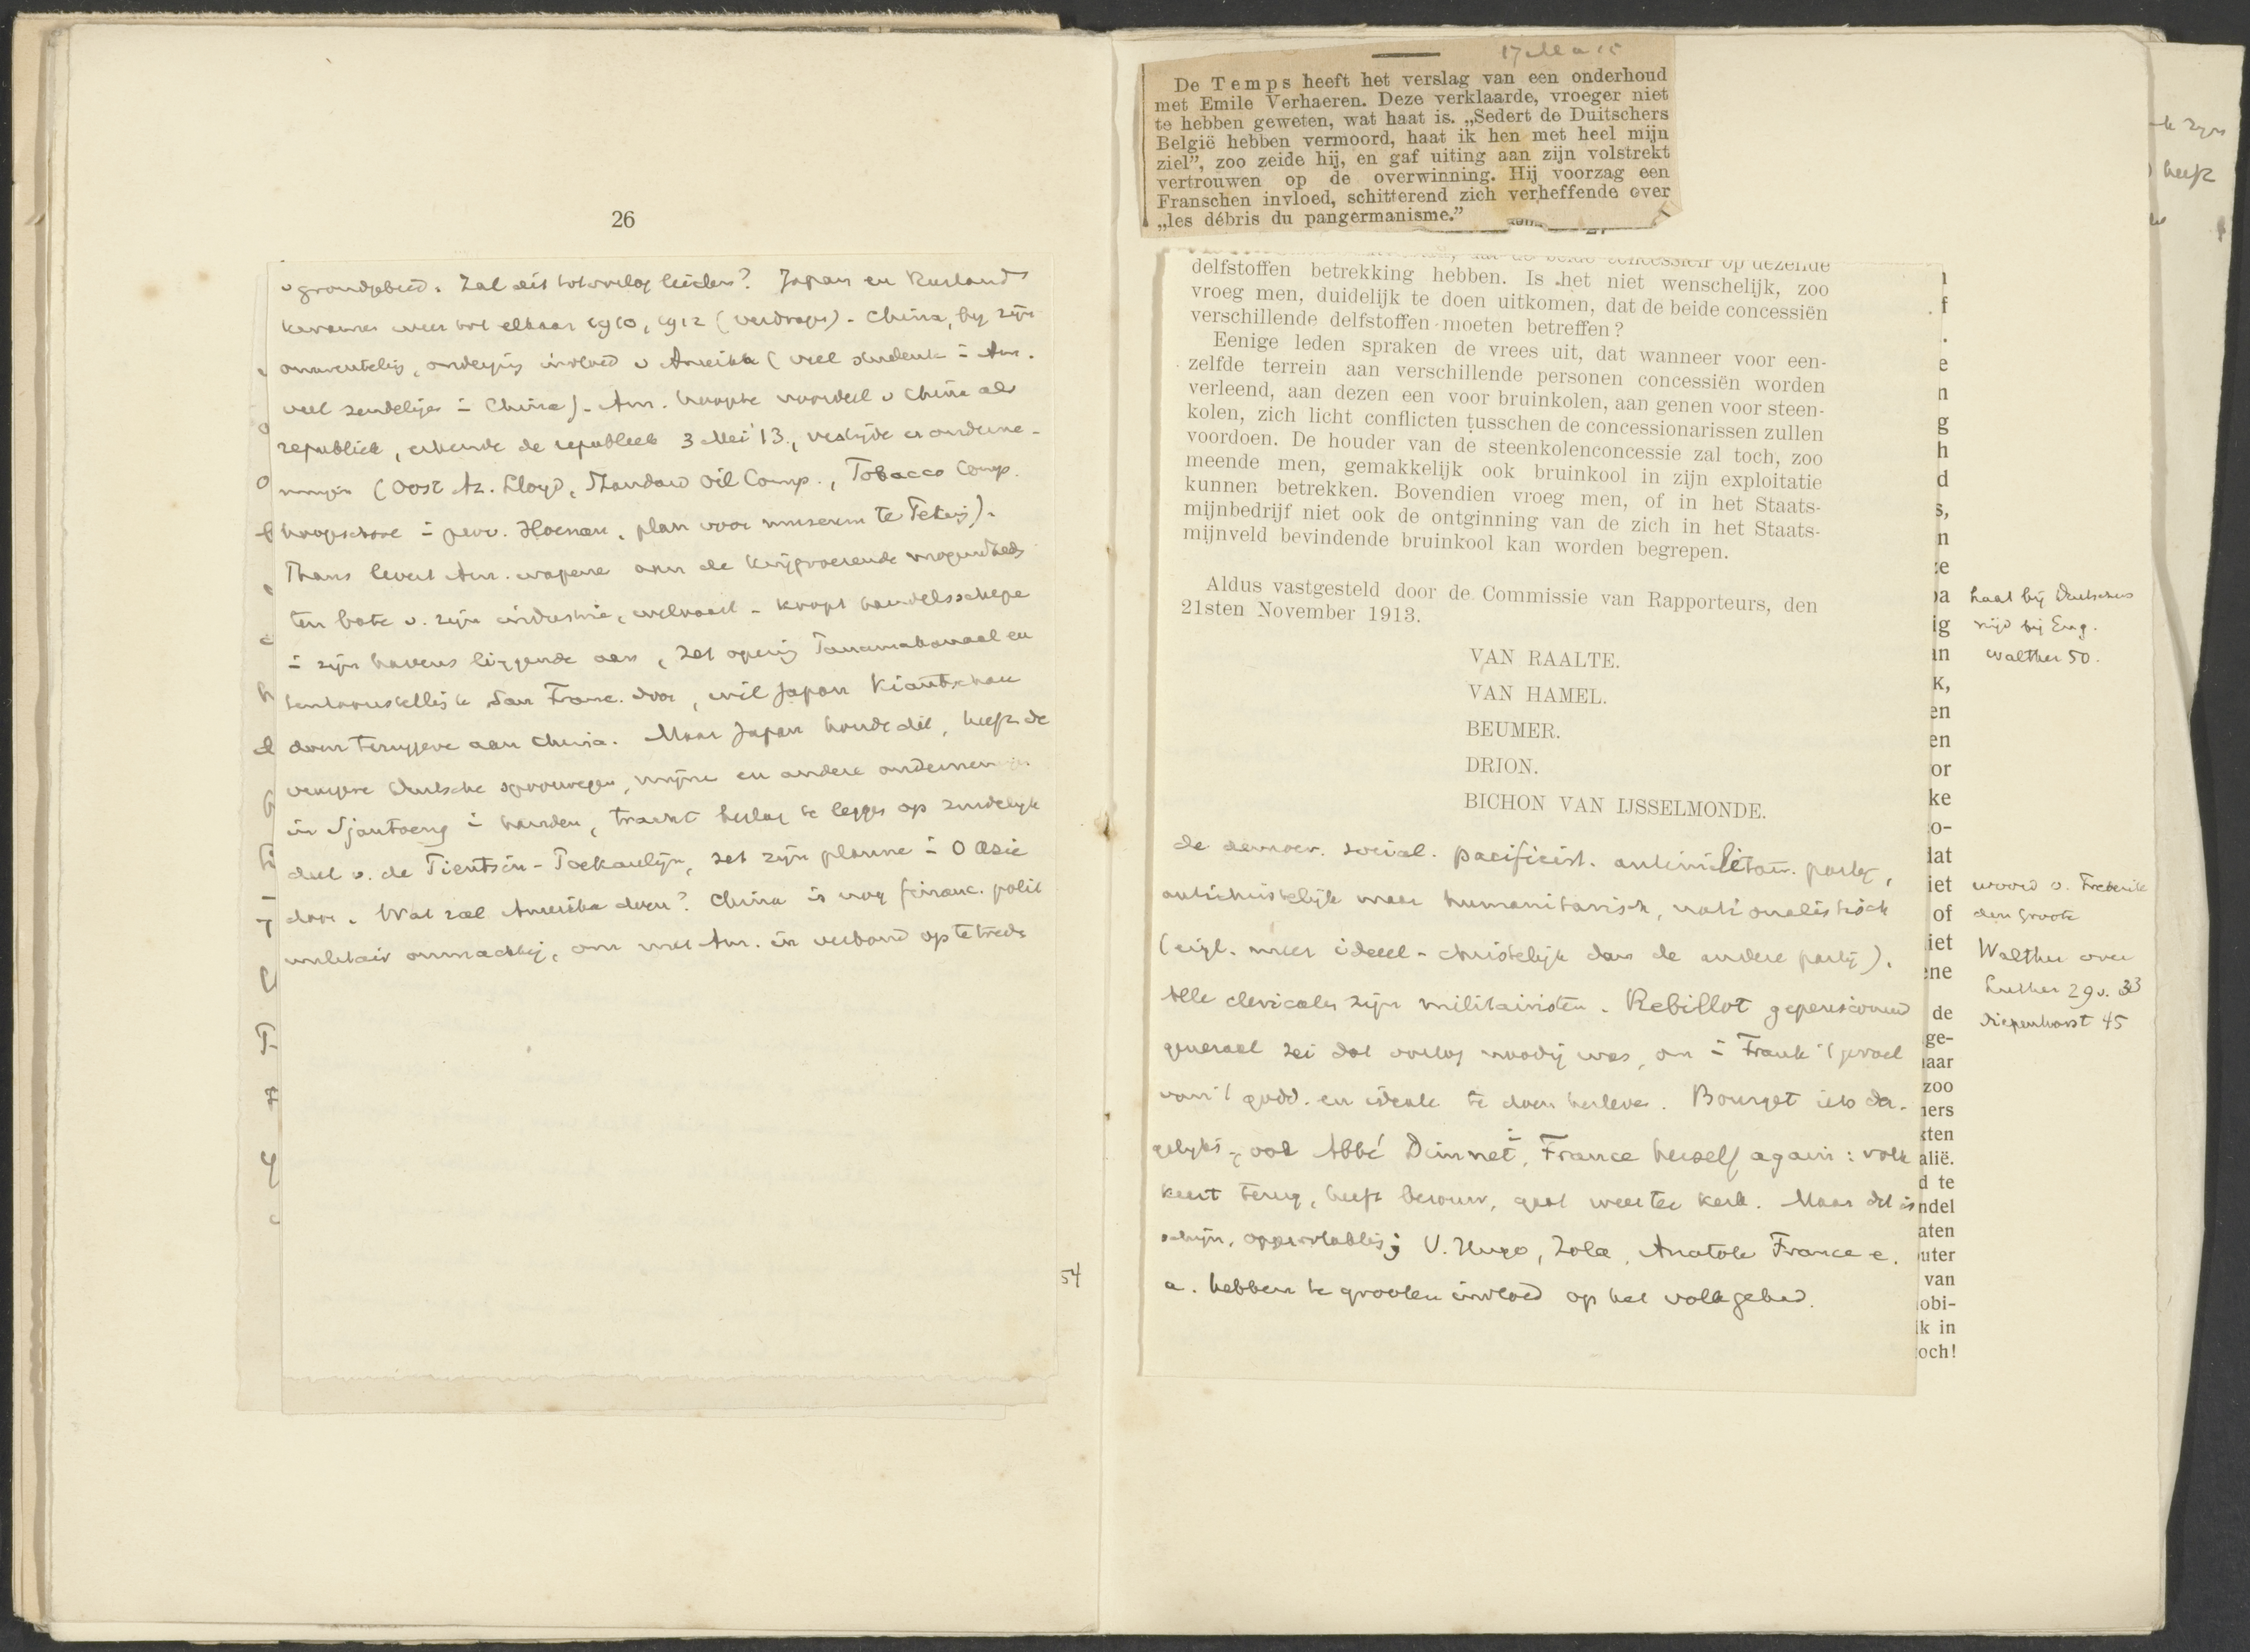 26
v grondgebied. Zal dit tot oorlog leiden? Japan en Rusland
kwamen weer tot elkaar 1910, 1912 (verdragen). China, bij zijn
onmiddellijk onder invloed v Amerika (veel student i Am.
veel zendelijge i China). Am. hoopte voordeel v China als
republiek, erkende de republiek 3 Mei '13, vestigde er onderne-
mingen (Oost Az. Lloyd, Standard Oil Comp., Tobacco Comp.
i prov. Hoenan, plan voor museum te Peking).
Thans levert Am. wapene aan de krijgvoerende mogendheden
ten bate v. zijn industrie, welvaart - koopt handelsschepe
i zijn havens liggende aan, zet opening Panamakanaal en
tentoonstelling te San Franc. door, wil Japan Kiautschau
doen teruggeve aan China. Maar Japan houdt dit, heeft de
vroegere Duitsche spoorwegen, mijne en andere onderneming
in Sjantoeng i handen, tracht beslag te leggen op zuidelijk
deel v. de Tientsin-Poekaulijn, zet zijn planne i O Azie
door. Wat zal Amerika doen? China is nog financ. polit
militair onmachtig, om met Am. in verband op te treden
54
17 Mei 15
De Temps heeft het verslag van een onderhoud
met Emile Verhaeren. Deze verklaarde, vroeger niet
te hebben geweten, wat haat is. „Sedert de Duitschers
België hebben vermoord, haat ik hen met heel mijn
ziel”, zoo zeide hij, en gaf uiting aan zijn volstrekt
vertrouwen op de overwinning. Hij voorzag een
Franschen invloed, schitterend zich verheffende over
„les débris du pangermanisme.”
delfstoffen betrekking hebben. Is het niet wenschelijk, zoo
vroeg men, duidelijk te doen uitkomen, dat de beide concessiën
verschillende delfstoffen moeten betreffen?
Eenige leden spraken de vrees uit, dat wanneer voor een-
zelfde terrein aan verschillende personen concessiën worden
verleend, aan dezen een voor bruinkolen, aan genen voor steen-
kolen, zich licht conflicten tusschen de concessionarissen zullen
voordoen. De houder van de steenkolenconcessie zal toch, zoo
meende men, gemakkelijk ook bruinkool in zijn exploitatie
kunnen betrekken. Bovendien vroeg men, of in het Staats-
mijnbedrijf niet ook de ontginning van de zich in het Staats-
mijnveld bevindende bruinkool kan worden begrepen.
Aldus vastgesteld door de Commissie van Rapporteurs, den
21sten November 1913.
VAN RAALTE.
VAN HAMEL.
BEUMER.
DRION.
BICHON VAN IJSSELMONDE.
de democr. social. pacificist. antimilitair. partij,
antichristelijk maar humanitarisch, nationalistisch
(eigl. meer ideeel-christelijk dan de andere partij).
Alle clericalen zijn militairisten. Rebillot gepensioneerd
generaal zei dat oorlog noodig was, om i Frank 't gevoel
van 't godd. en ideale te doen herleven. Bourget iets der-
gelijks, ook Abbé Dimnet i France herself again: volk
keert terug, heeft berouw, gaat weer ter kerk. Maar dit is
schijn, oppervlakkig; V. Hugo, Zola, Anatole France e.
a. hebben te grooten invloed op het volk gehad.
haat bij Duitschers
nijd bij Eng.
Walther 50.
woord v. Frederik
den Groote
Walther over
Luther 29 v. 33
Diepenhorst 45
n
f
e
n
g
h
d
s,
n
ig
in
K,
en
en
or
ke
o-
dat
iet
of
iet
ene
de
ge-
aar
zoo
ners
kten
alië.
d te
ndel
aten
uter
van
obi-
lk in
och!
heeft